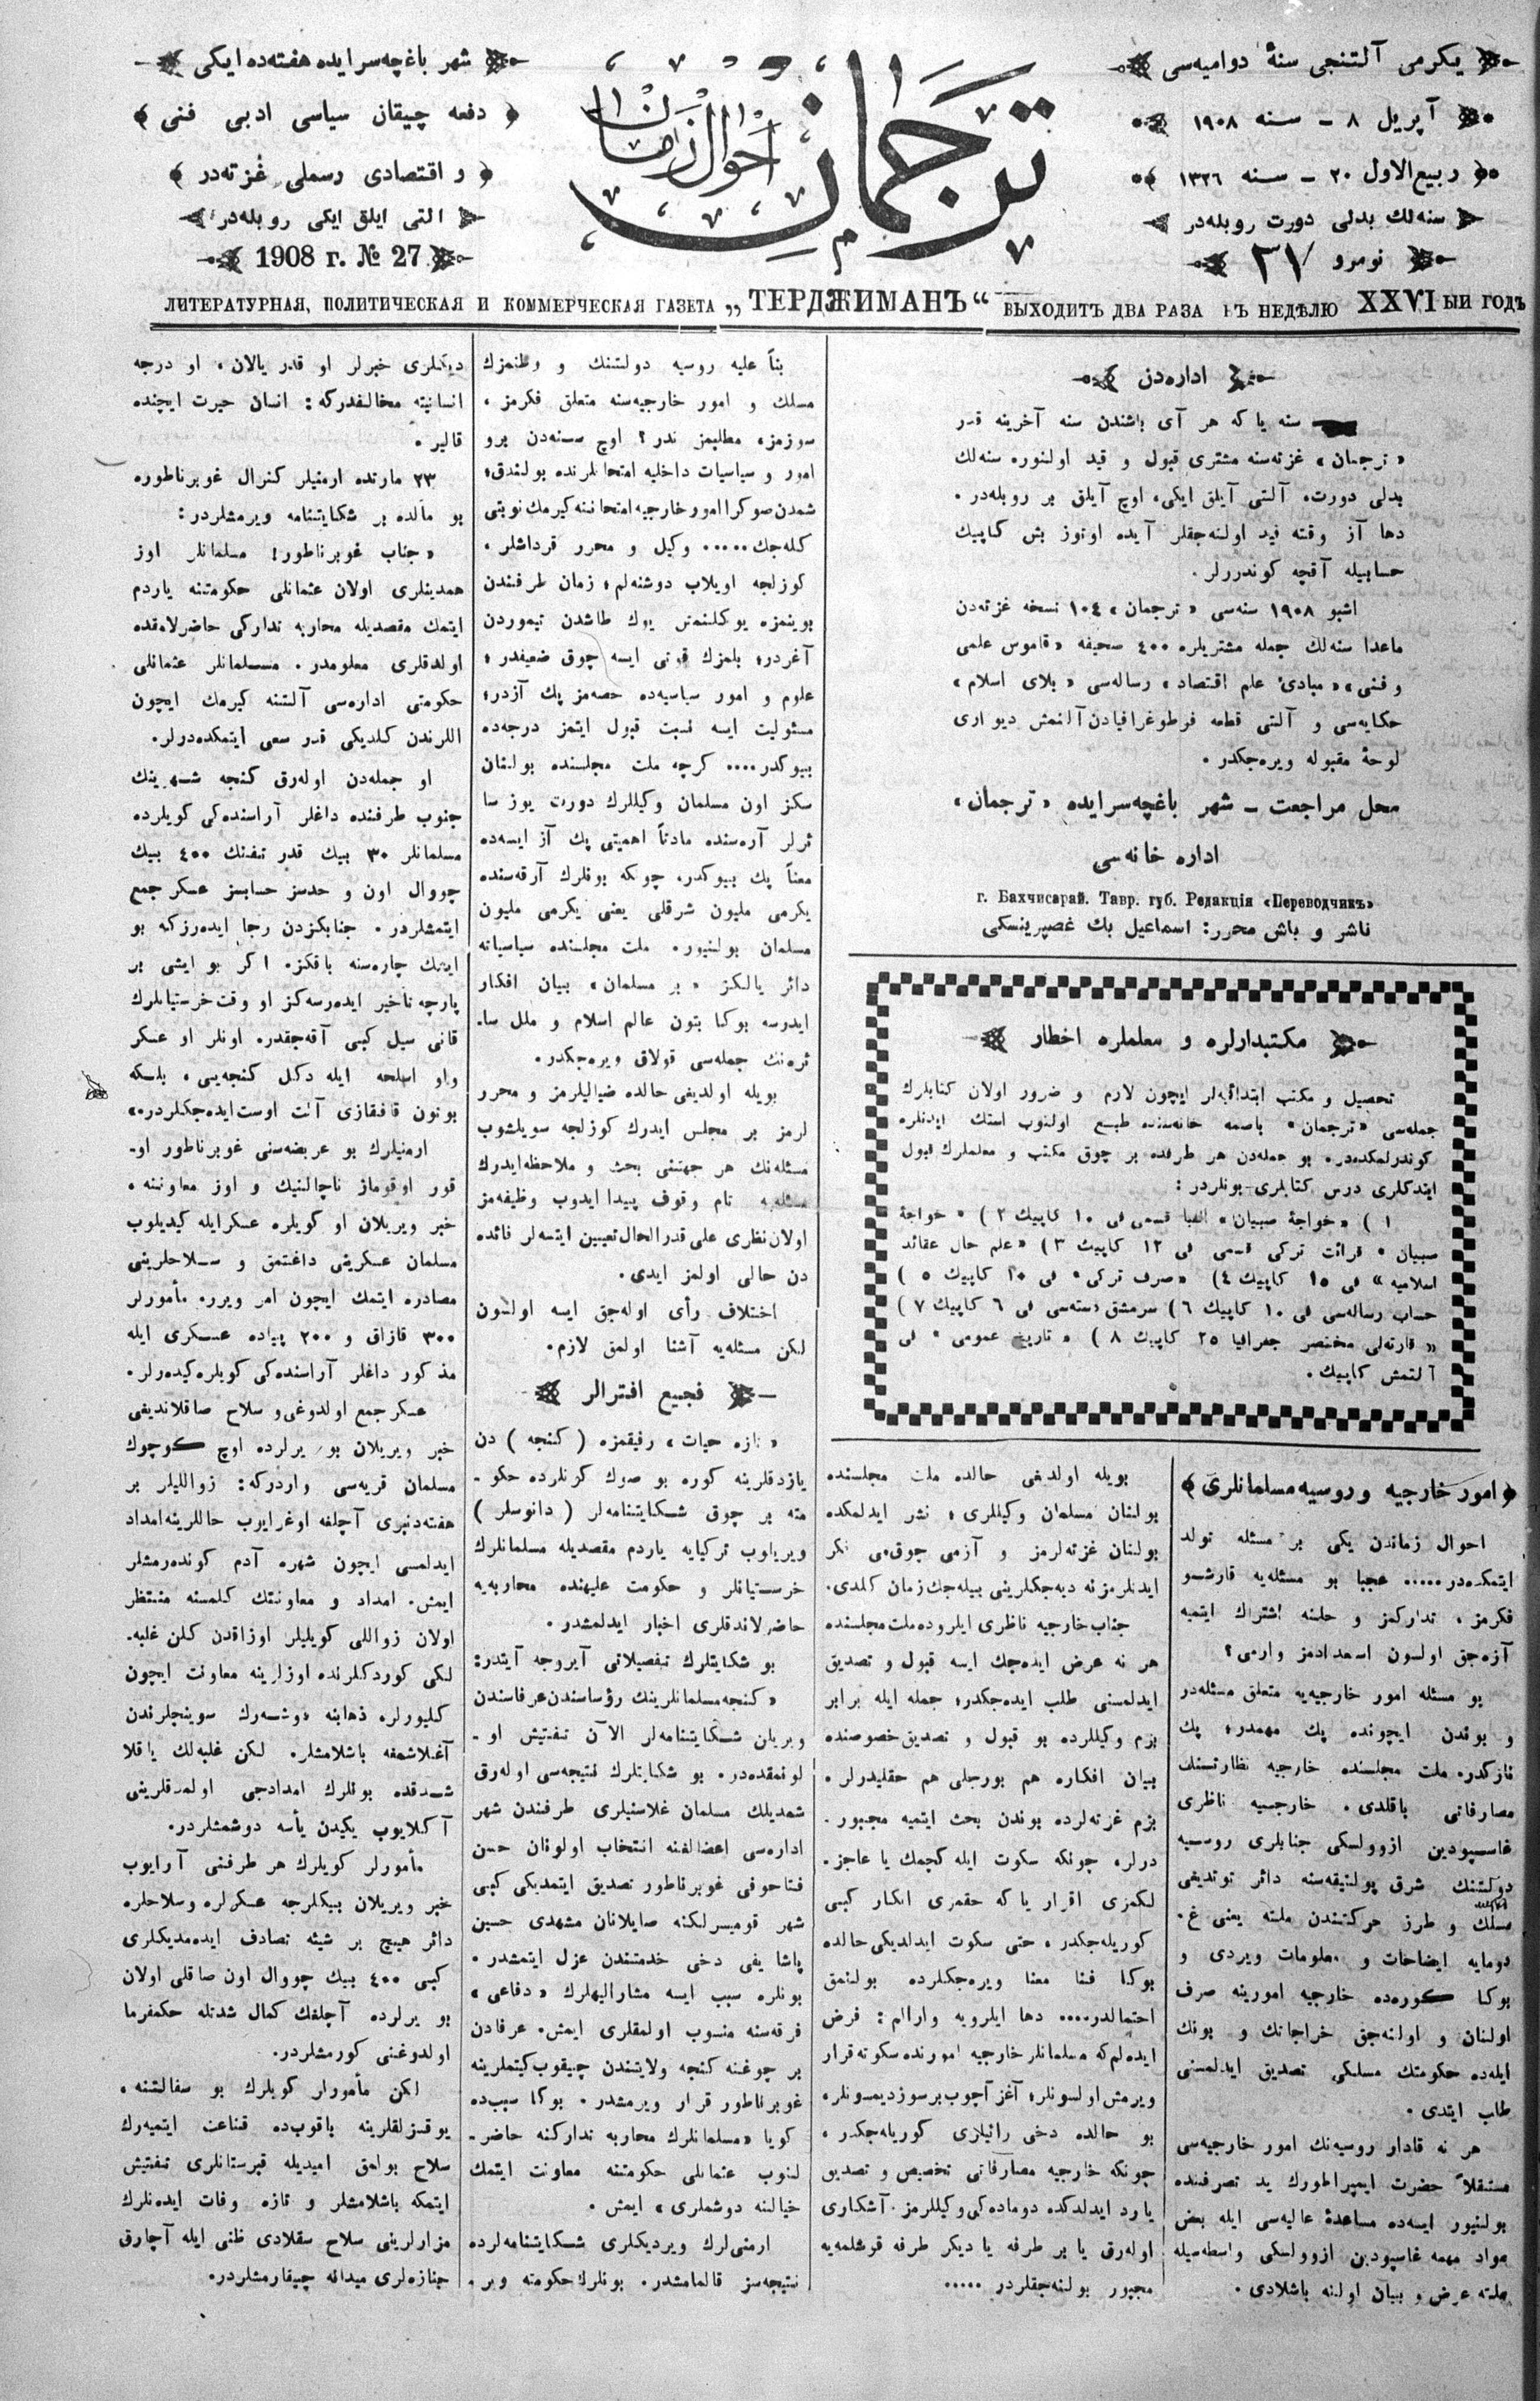 يكرمى آلتنجى سنۀ دواميه‌سى
آپريل ٨ ـ سنه ١٩٠٨
ربيع الاول ٢٠ ـ سنه ١٣٢٦
سنه‌لك بدلى دورت روبله‌در
نومرو ٢٧
ترجمان احوال زمان
شهر باغچه‌سرايده هفته‌ده ايكى
دفعه چيقان سياسى ادبى فنى
و اقتصادى رسملى غزته‌در
التى ايلق ايكى روبله‌در
1908 г. № 27
ЛИТЕРАТУРНАЯ, ПОЛИТИЧЕСКАЯ И КОММЕРЧЕСКАЯ ГАЗЕТА „ТЕРДЖИМАНЪ“ ВЫХОДИТЪ ДВА РАЗА ВЪ НЕДѢЛЮ XXVI ЫЙ ГОДЪ
اداره‌دن
سنه يا كه هر آى باشندن سنه آخرينه قدر
«ترجمان» غزته‌سنه مشترى قبول و قيد اولنوره سنه‌لك
بدلى دورت، آلتى آيلق ايكى، اوچ آيلق بر روبله‌در.
دها آز وقته قيد اولنه‌جقلر آيده اوتوز بش كاپيك
حسابيله آقچه كوندررلر.
اشبو ١٩٠٨ سنه‌سى «ترجمان» ١٠٤ نسخه غزته‌دن
ماعدا سنه‌لك جمله مشتريلره ٤٠٠ صحيفه «قاموس علمى
و فنى» «مبادئ علم اقتصاد» رساله‌سى «بلاى اسلام»
حكايه‌سى و آلتى قطعه فوطوغرافيادن آلنمش ديوارى
لوحۀ مقبوله ويره‌جكدر.
محل مراجعت ـ شهر باغچه‌سرايده «ترجمان»
اداره خانه‌سى
г. Бахчисарай. Тавр. губ. Редакція «Переводчикъ»
ناشر و باش محرر: اسماعيل بك غصپرينسكى
مكتبدارلره و معلملره اخطار
تحصيل و مكتب ابتدائيه‌لر ايچون لازم و ضرور اولان كتابلرك
جمله‌سى «ترجمان» باصمه خانه‌سنده طبع اولنوب استك ايدنلره
كوندرلمكده‌در. بو جمله‌دن هر طرفده بر چوق مكتب و معلملرك قبول
ايتدكلرى درس كتابلرى بونلردر:
١) «خواجۀ صبيان» الفبا قسمى فى ١٠ كاپيك ٢) «خواجۀ
صبيان» قرائت تركى قسمى فى ١٢ كاپيك ٣) «علم حال عقائد
اسلاميه» فى ١٥ كاپيك ٤) «صرف تركى» فى ١٠ كاپيك ٥)
حساب رساله‌سى فى ١٠ كاپيك ٦) سرمشق دسته‌سى فى ٦ كاپيك ٧)
«قارته‌لى مختصر جغرافيا ٢٥ كاپيك ٨) «تاريخ عمومى» فى
آلتمش كاپيك.
﴿امور خارجيه و روسيه مسلمانلرى﴾
احوال زماندن يكى بر مسئله تولد
ايتمكده‌در..... عجبا بو مسئله‌يه قارشو
فكرمز، تداركمز و حلنه اشتراك ايتميه
آزه‌جق اولسون استعدادمز وارمى؟
بو مسئله امور خارجيه‌يه متعلق مسئله‌در
و بوندن ايچونده پك مهمدر؛ پك
نازكدر. ملت مجلسنده خارجيه نظارتنك
مصارفاتى باقلدى. خارجيه ناظرى
غاسپودين ازوولسكى جنابلرى روسيه
دولتنك شرق پولتيقه‌سنه دائر توتديغى
مسلك و طرز حركتندن ملته يعنى غ.
دومايه ايضاحات و معلومات ويردى و
بوكا كوره‌ده خارجيه امورينه صرف
اولنان و اولنه‌جق خراجاتك و بونك
ايله‌ده حكومتك مسلكى تصديق ايدلمسنى
طلب ايتدى.
هر نه قادار روسيه‌نك امور خارجيه‌سى
مستقلاً حضرت ايمپراطورك يد تصرفنده
بولنيور ايسه‌ده مساعدۀ عاليه‌سى ايله بعض
مواد مهمه غاسپودين ازوولسكى واسطه‌سيله
ملته عرض و بيان اولنه باشلادى.
بويله اولديغى حالده ملت مجلسنده
بولنان مسلمان وكيللرى؛ نشر ايدلمكده
بولنان غزته‌لرمز و آزمى چوقمى فكر
ايدنلرمز نه ديه‌جكلرينى بيله‌جك زمان كلدى.
جناب خارجيه ناظرى ايلروده ملت مجلسنده
هر نه عرض ايده‌جك ايسه قبول و تصديق
ايدلمسنى طلب ايده‌جكدر؛ جمله ايله برابر
بزم وكيللرده بو قبول و تصديق خصوصنده
بيان افكاره هم بورجلى هم حقليدرلر.
بزم غزته‌لرده بوندن بحث ايتميه مجبور.
درلر، چونكه سكوت ايله كچمك يا عاجز.
لكمزى اقرار يا كه حقمزى انكار كبى
كوريله‌جكدر، حتى سكوت ايدلديكى حالده
بوكا فنا معنا ويره‌جكلرده بولنمق
احتمالدر.... دها ايلرويه وارالم: فرض
ايده‌لم كه مسلمانلر خارجيه امورنده سكوته قرار
ويرمش اولسونلر؛ آغز آچوب بر سوز ديمسونلر،
بو حالده دخى رائيلارى كوريله‌جكدر،
چونكه خارجيه مصارفاتى تخصيص و تصديق
يا رد ايدلدكده دوماده‌كى وكيللرمز. آشكارى
اوله‌رق يا بر طرفه يا ديكر طرفه قوشلمه‌يه
مجبور بولنه‌جقلردر .....
بناً عليه روسيه دولتنك و وطنمزك
مسلك و امور خارجيه‌سنه متعلق فكرمز،
سوزمز، مطلبمز ندر؟ اوچ سنه‌دن برو
امور و سياسيات داخليه امتحانلرنده بولندق؛
شمدن صوكرا امور خارجيه امتحاننه كيرمك نوبتى
كله‌جك..... وكيل و محرر قرداشلر،
كوزلجه اويلاب دوشنه‌لم؛ زمان طرفندن
بوينمزه يوكلنمش يوك طاشدن تيموردن
آغردر؛ بلمزك قوتى ايسه چوق ضعيفدر؛
علوم و امور سياسيه‌ده حصه‌مز پك آزدر؛
مسئوليت ايسه نسبت قبول ايتمز درجه‌ده
بيوكدر.... كرچه ملت مجلسنده بولنان
سكز اون مسلمان وكيللرك دورت يوز سا
ئرلر آره‌سنده مادتاً اهميتى پك آز ايسه‌ده
معناً پك بيوكدر. چونكه بونلرك آرقه‌سنده
يكرمى مليون شرقلى يعنى يكرمى مليون
مسلمان بولنيور. ملت مجلسنده سياسياته
دائر يالكز «بر مسلمان» بيان افكار
ايدرسه بوكا بتون عالم اسلام و ملل سا.
ئره‌نك جمله‌سى قولاق ويره‌جكدر.
بويله اولديغى حالده ضياليلرمز و محرر
لرمز بر مجلس ايدرك كوزلجه سويلشوب
مسئله‌نك هر جهتنى بحث و ملاحظه ايدرك
مسئله‌يه تام وقوف پيدا ايدوب وظيفه‌مز
اولان نظرى على قدر الحال تعيين ايتسه‌لر فائده
دن خالى اولمز ايدى.
اختلاف رأى اوله‌جق ايسه اولسون
لكن مسئله‌يه آشنا اولمق لازم.
فجيع افترالر
«تازه حيات» رفيقمزه (كنجه) دن
يازدقلرينه كوره بو صوك كونلرده حكو ـ
مته بر چوق شكايتنامه‌لر (دانوسلر)
ويريلوب تركيايه ياردم مقصديله مسلمانلرك
خرستيانلر و حكومت عليهنده محاربه‌يه
حاضرلاندقلرى اخبار ايدلمشدر.
بو شكايتلرك تفصيلاتى آيروجه آيتدر:
«كنجه مسلمانلرينك رؤساسندن عرفاسندن
ويريلن شكايتنامه‌لر الآن تفتيش او ـ
لونمقده‌در. بو شكايتلرك نتيجه‌سى اوله‌رق
شمديلك مسلمان غلاسنيلرى طرفندن شهر
اداره‌سى اعضالغنه انتخاب اولونان حسن
فتاحوفى غوبرناطور تصديق ايتمديكى كبى
شهر قوميسرلكنه صايلانان مشهدى حسين
پاشا يفى دخى خدمتندن عزل ايتمشدر.
بونلره سبب ايسه مشاراليهلرك «دفاعى»
فرقه‌سنه منسوب اولمقلرى ايمش. عرفادن
بر چوغنه كنجه ولايتندن چيقوب كيتملرينه
غوبرناطور قرار ويرمشدر. بوكا سببده
كويا «مسلمانلرك محاربه تداركنه حاضر ـ
لنوب عثمانلى حكومتنه معاونت ايتمك
خيالنه دوشملرى» ايمش.
ارمنى‌لرك ويرديكلرى شكايتنامه‌لرده
نتيجه‌سز قالمامشدر. بونلرك حكومته وير.
ديكلرى خبرلر او قدر يالان، او درجه
انسانيته مخالفدركه: انسان حيرت ايچنده
قالير.
٢٣ مارتده ارمنيلر كنرال غوبرناطوره
بو مآلده بر شكايتنامه ويرمشلردر:
«جناب غوبرناطور! مسلمانلر اوز
همدينلرى اولان عثمانلى حكومتنه ياردم
ايتمك مقصديله محاربه تداركى حاضرلامقده
اولدقلرى معلومدر. مسلمانلر عثمانلى
حكومتى اداره‌سى آلتنه كيرمك ايچون
اللرندن كلديكى قدر سعى ايتمكده‌درلر.
او جمله‌دن اوله‌رق كنجه شهرينك
جنوب طرفنده داغلر آراسنده‌كى كويلرده
مسلمانلر ٣٠ بيك قدر تفنك ٤٠٠ بيك
چووال اون و حدسز حسابسز عسكر جمع
ايتمشلردر. جنابكزدن رجا ايده‌رزكه بو
ايشك چاره‌سنه باقكز. اكر بو ايشى بر
پارچه تأخير ايده‌رسه‌كز او وقت خرستيانلرك
قانى سيل كبى آقه‌جقدر. اونلر او عسكر
و او اسلحه ايله دكل كنجه‌يى، بلكه
بوتون قافقازى آلت اوست ايده‌جكلردر.»
ارمنيلرك بو عريضه‌سنى غوبرناطور او ـ
قور اوقوماز ناچالنيك و اوز معاوننه،
خبر ويريلان او كويلره عسكر ايله كيديلوب
مسلمان عسكرينى داغتمق و سلاحلرينى
مصادره ايتمك ايچون امر ويرر. مأمورلر
٣٠٠ قازاق و ٢٠٠ پياده عسكرى ايله
مذكور داغلر آراسنده‌كى كويلره كيده‌رلر.
عسكر جمع اولدوغى و سلاح صاقلانديغى
خبر ويريلان بو يرلرده اوچ كوچوك
مسلمان قريه‌سى واردركه: زوالليلر بر
هفته‌دنبرى آچلغه اوغرايوب حاللرينه امداد
ايدلمسى ايچون شهره آدم كوندرمشلر
ايمش. امداد و معاونتك كلمسنه منتظر
اولان زواللى كويليلر اوزاقدن كلن غلبه.
لكى كوردكلرنده اوزلرينه معاونت ايچون
كليورلر. ذهابنه دوشه‌رك سوينجلرندن
آغلاشمغه باشلامشلر. لكن غلبه‌لك ياقلا
شدقده بونلرك امدادجى اولمدقلرينى
آكلايوب يكيدن يأسه دوشمشلردر.
مأمورلر كويلرك هر طرفنى آرايوب
خبر ويريلان بيكلرجه عسكرلره و سلاحلره
دائر هيچ بر شيئه تصادف ايده‌مديكلرى
كبى ٤٠٠ بيك چووال اون صاقلى اولان
بو يرلرده آچلغك كمال شدتله حكمفرما
اولدوغنى كورمشلردر.
لكن مأمورلر كويلرك بو سفالتنه،
يوقسزلقلرينه باقوب‌ده قناعت ايتميه‌رك
سلاح بولمق اميديله قبرستانلرى تفتيش
ايتمكه باشلامشلر و تازه وفات ايدنلرك
مزارلرينى سلاح سقلادى ظنى ايله آچارق
جنازه‌لرى ميدانه چيقارمشلردر.